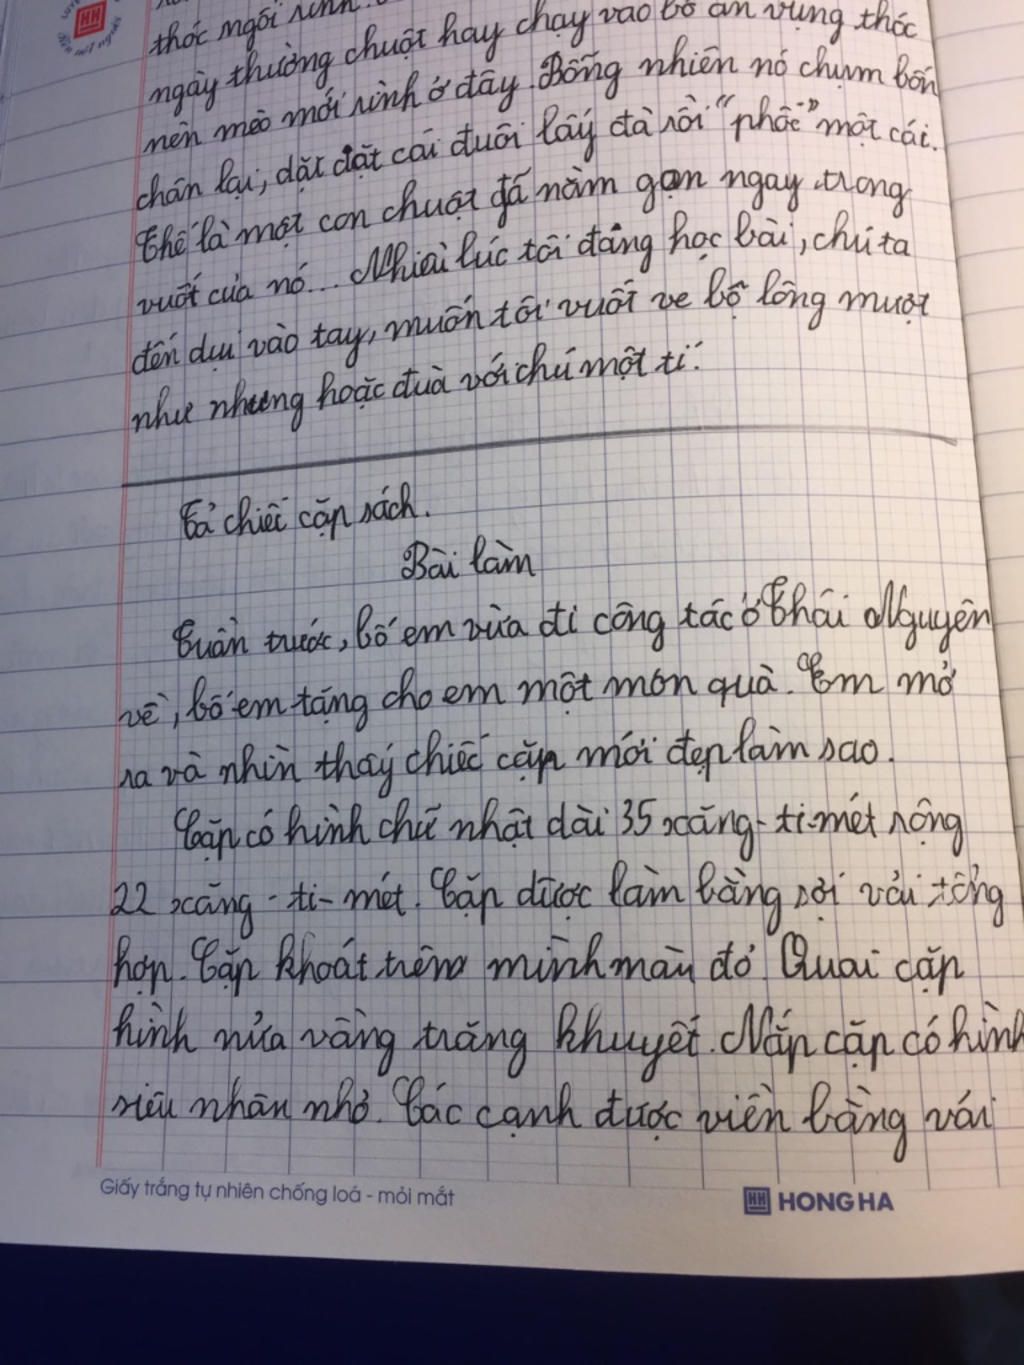 thóc ngồi rình.
ngày thường chuột hay chạy vào bồ ăn vụng thóc
nên mèo mới rình ở đây. Bỗng nhiên nó chụm bốn
chân lại, dặt dặt cái đuôi lấy đà rồi "phốc" một cái.
Thế là một con chuột đã nằm gọn ngay trong
vuốt của nó... Nhiều lúc tôi đang học bài, chú ta
đến dụi vào tay, muốn tôi vuốt ve bộ lông mượt
như nhung hoặc đùa với chú một tí.
Tả chiếc cặp sách.
Bài làm
Tuần trước, bố em vừa đi công tác ở Thái Nguyên
về, bố em tặng cho em một món quà. Em mở
ra và nhìn thấy chiếc cặp mới đẹp làm sao.
Cặp có hình chữ nhật dài 35 xăng-ti-mét rộng
22 xăng-ti-mét. Cặp được làm bằng sợi vải tổng
hợp. Cặp khoát trên mình màu đỏ. Quai cặp
hình nửa vầng trăng khuyết. Nắp cặp có hình
siêu nhân nhỏ. Các cạnh được viền bằng vải
Giấy trắng tự nhiên chống loá - mỏi mắt
HH HONG HA